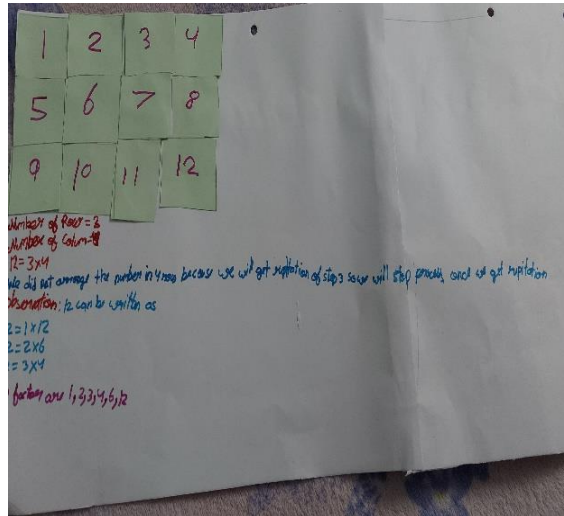 1 2 3 4
5 6 7 8
9 10 11 12
Number of Row = 3
Number of Colum = 4
12 = 3x4
We did not arrange the number in 4 row because we will get of step 3 so we will stop process and we get
observation: 12 can be written as
2 = 1x12
2 = 2x6
= 3x4
factors are 1, 2, 3, 4, 6, 12